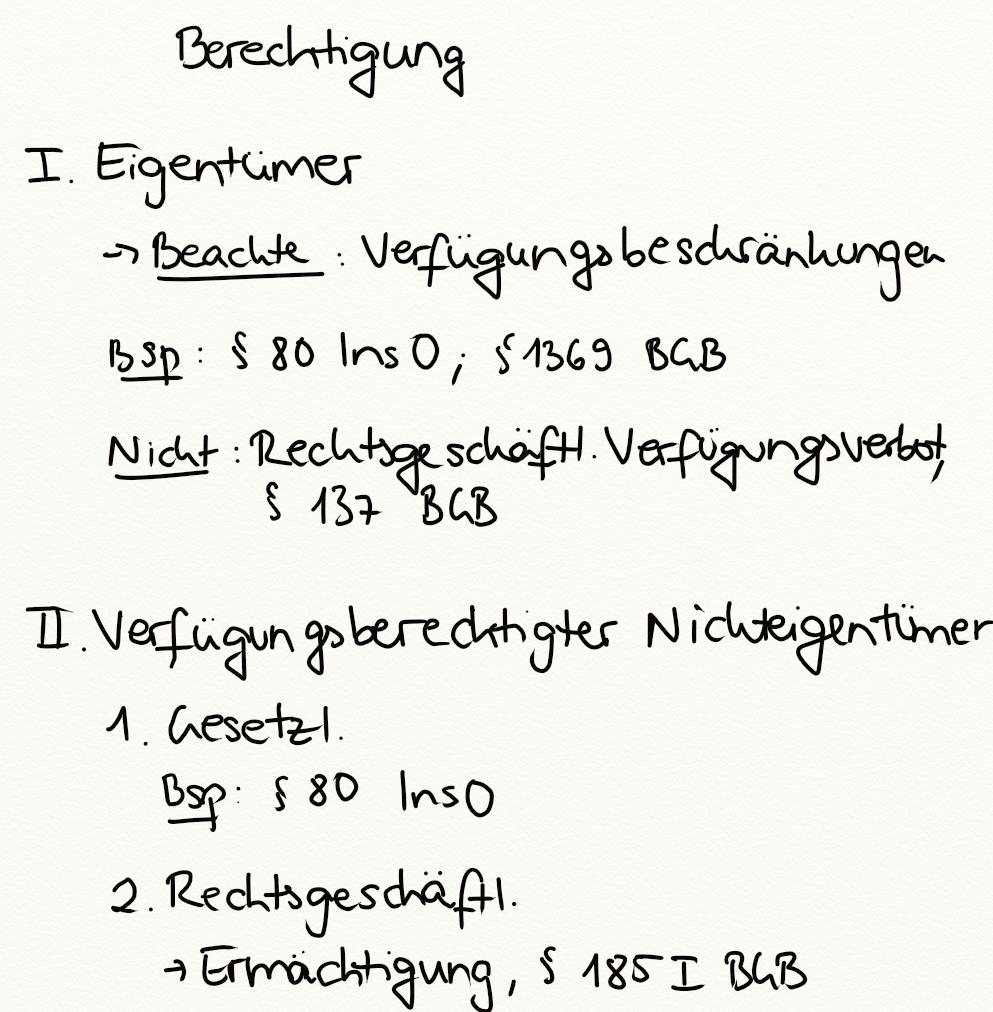 Berechtigung
I. Eigentümer
→ Beachte : Verfügungsbeschränkungen
Bsp : § 80 InsO ; § 1369 BGB
Nicht : Rechtsgeschäftl. Verfügungsverbot,
§ 137 BGB
II. Verfügungsberechtigter Nichteigentümer
1. Gesetzl.
Bsp : § 80 InsO
2. Rechtsgeschäftl.
→ Ermächtigung, § 185 I BGB